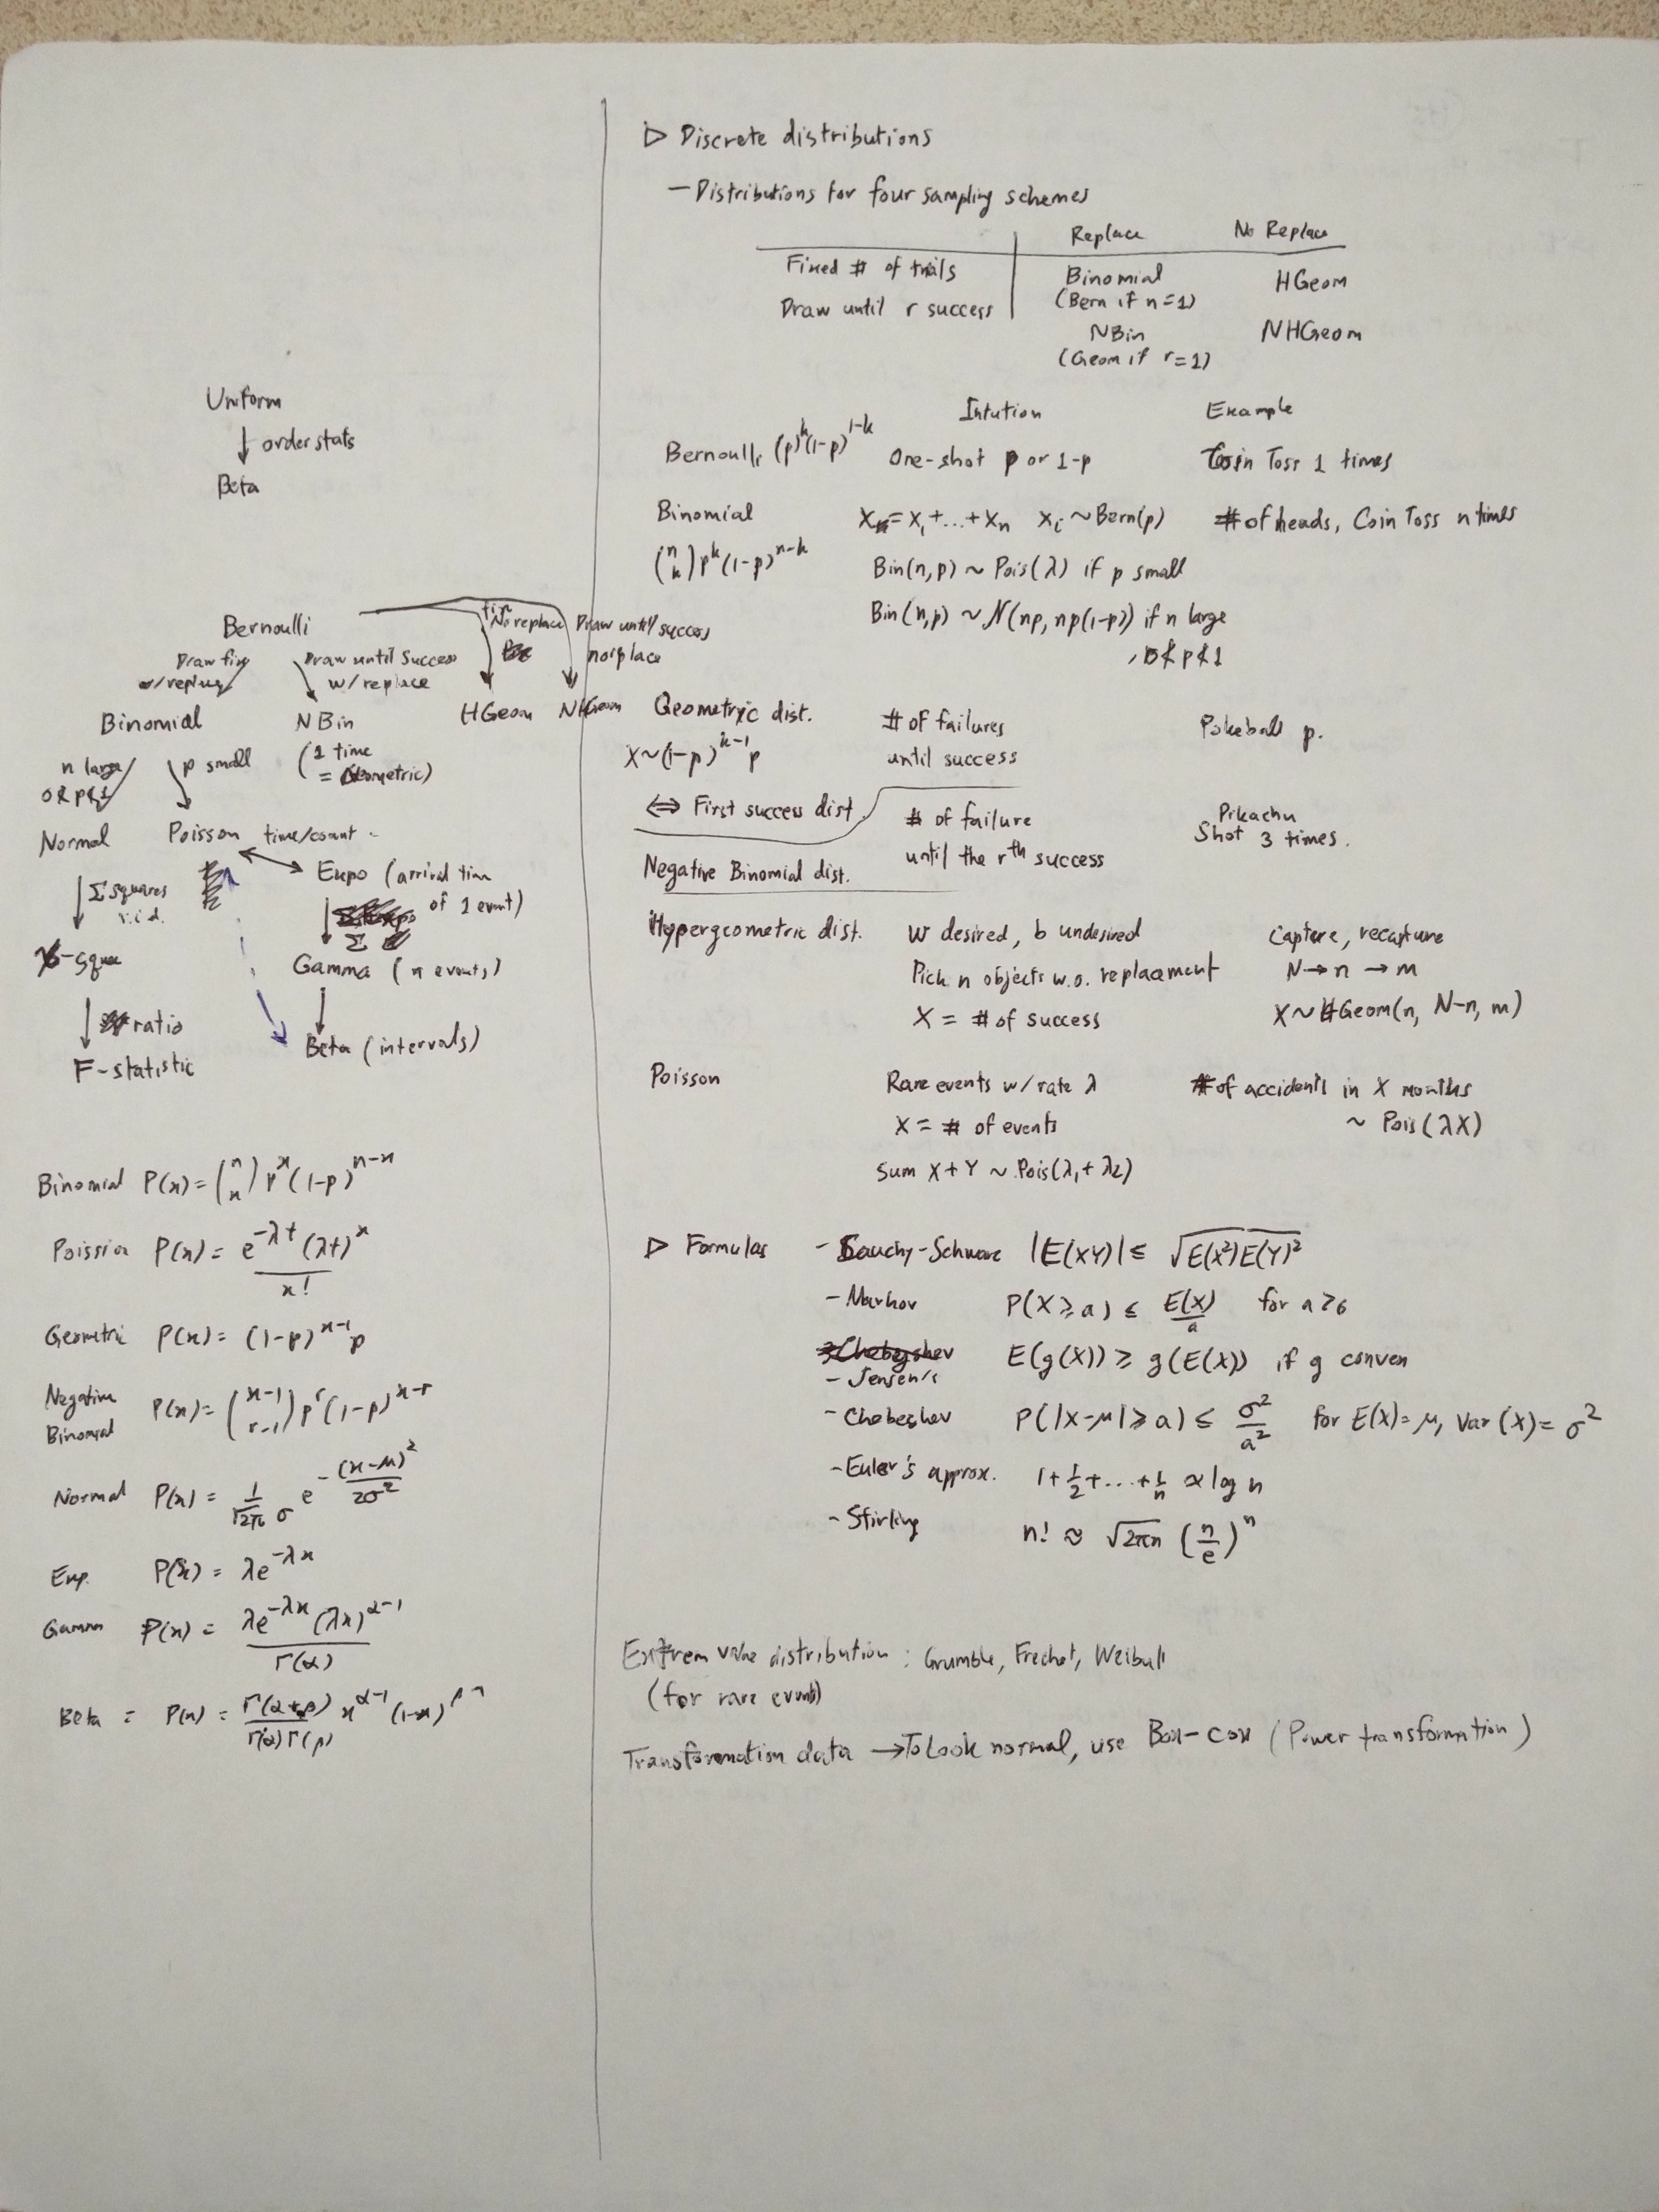 Uniform
↓ order stats
Beta
Bernoulli
Draw fix
w/replace
Draw until success
w/ replace
No replace
Draw until success
Binomial
NBin
(1 time
= Geometric)
HGeom
NHGeom
n large
p small
Normal
Poisson time/count
Expo (arrival time
of 1 event)
Σ squares
i.i.d.
Σ
-square
Gamma (n events)
ratio
F-statistic
Beta (intervals)
Binomial P(x) = (n x) p^x (1-p)^n-x
Poission P(x) = e^-λt (λt)^x / x!
Geometric P(x) = (1-p)^x-1 p
Negative
Binomial P(x) = (x-1 r-1) p^r (1-p)^x-r
Normal P(x) = 1/√2π σ e^-(x-μ)^2/2σ^2
Exp. P(x) = λe^-λx
Gamma P(x) = λe^-λx (λx)^α-1 / Γ(α)
Beta = P(x) = Γ(α+β)/Γ(α)Γ(β) x^α-1 (1-x)
▷ Discrete distributions
- Distributions for four sampling schemes
Replace No Replace
Fixed # of trials Binomial HGeom
(Bern if n=1)
Draw until r success NBin NHGeom
(Geom if r=1)
Intution Example
Bernoulli (p)^k(1-p)^1-k One-shot p or 1-p Coin Toss 1 times
Binomial X = X₁+...+Xn Xi ~ Bern(p) # of heads, Coin Toss n times
(n k) p^k (1-p)^n-k Bin(n,p) ~ Pois(λ) if p small
Bin(n,p) ~ N(np, np(1-p)) if n large
Geometric dist. # of failures Pokeball p.
X~(1-p)^k-1 p until success
⇔ First success dist. # of failure Pikachu
until the r^th success Shot 3 times.
Negative Binomial dist.
Hypergeometric dist. w desired, b undesired Capture, recapture
Pick n objects w.o. replacement N → n → m
X = # of success X ~ HGeom(n, N-n, m)
Poisson Rare events w/ rate λ # of accidents in X months
X = # of events ~ Pois(λX)
Sum X+Y ~ Pois(λ₁+λ₂)
▷ Formulas - Cauchy-Schwarz |E(XY)| ≤ √E(X²)E(Y)²
- Markov P(X ≥ a) ≤ E(X)/a for a
- Jensen's E(g(X)) ≥ g(E(X)) if g convex
- Chebeshev P(|X-μ| ≥ a) ≤ σ²/a² for E(X)=μ, Var(X)=σ²
- Euler's approx. 1+1/2+...+1/n ≈ log n
- Stirling n! ≈ √2πn (n/e)^n
Extrem value distribution : Grumble, Frechet, Weibull
(for rare events)
Transformation data → To Look normal, use Box-cox (Power transformation)